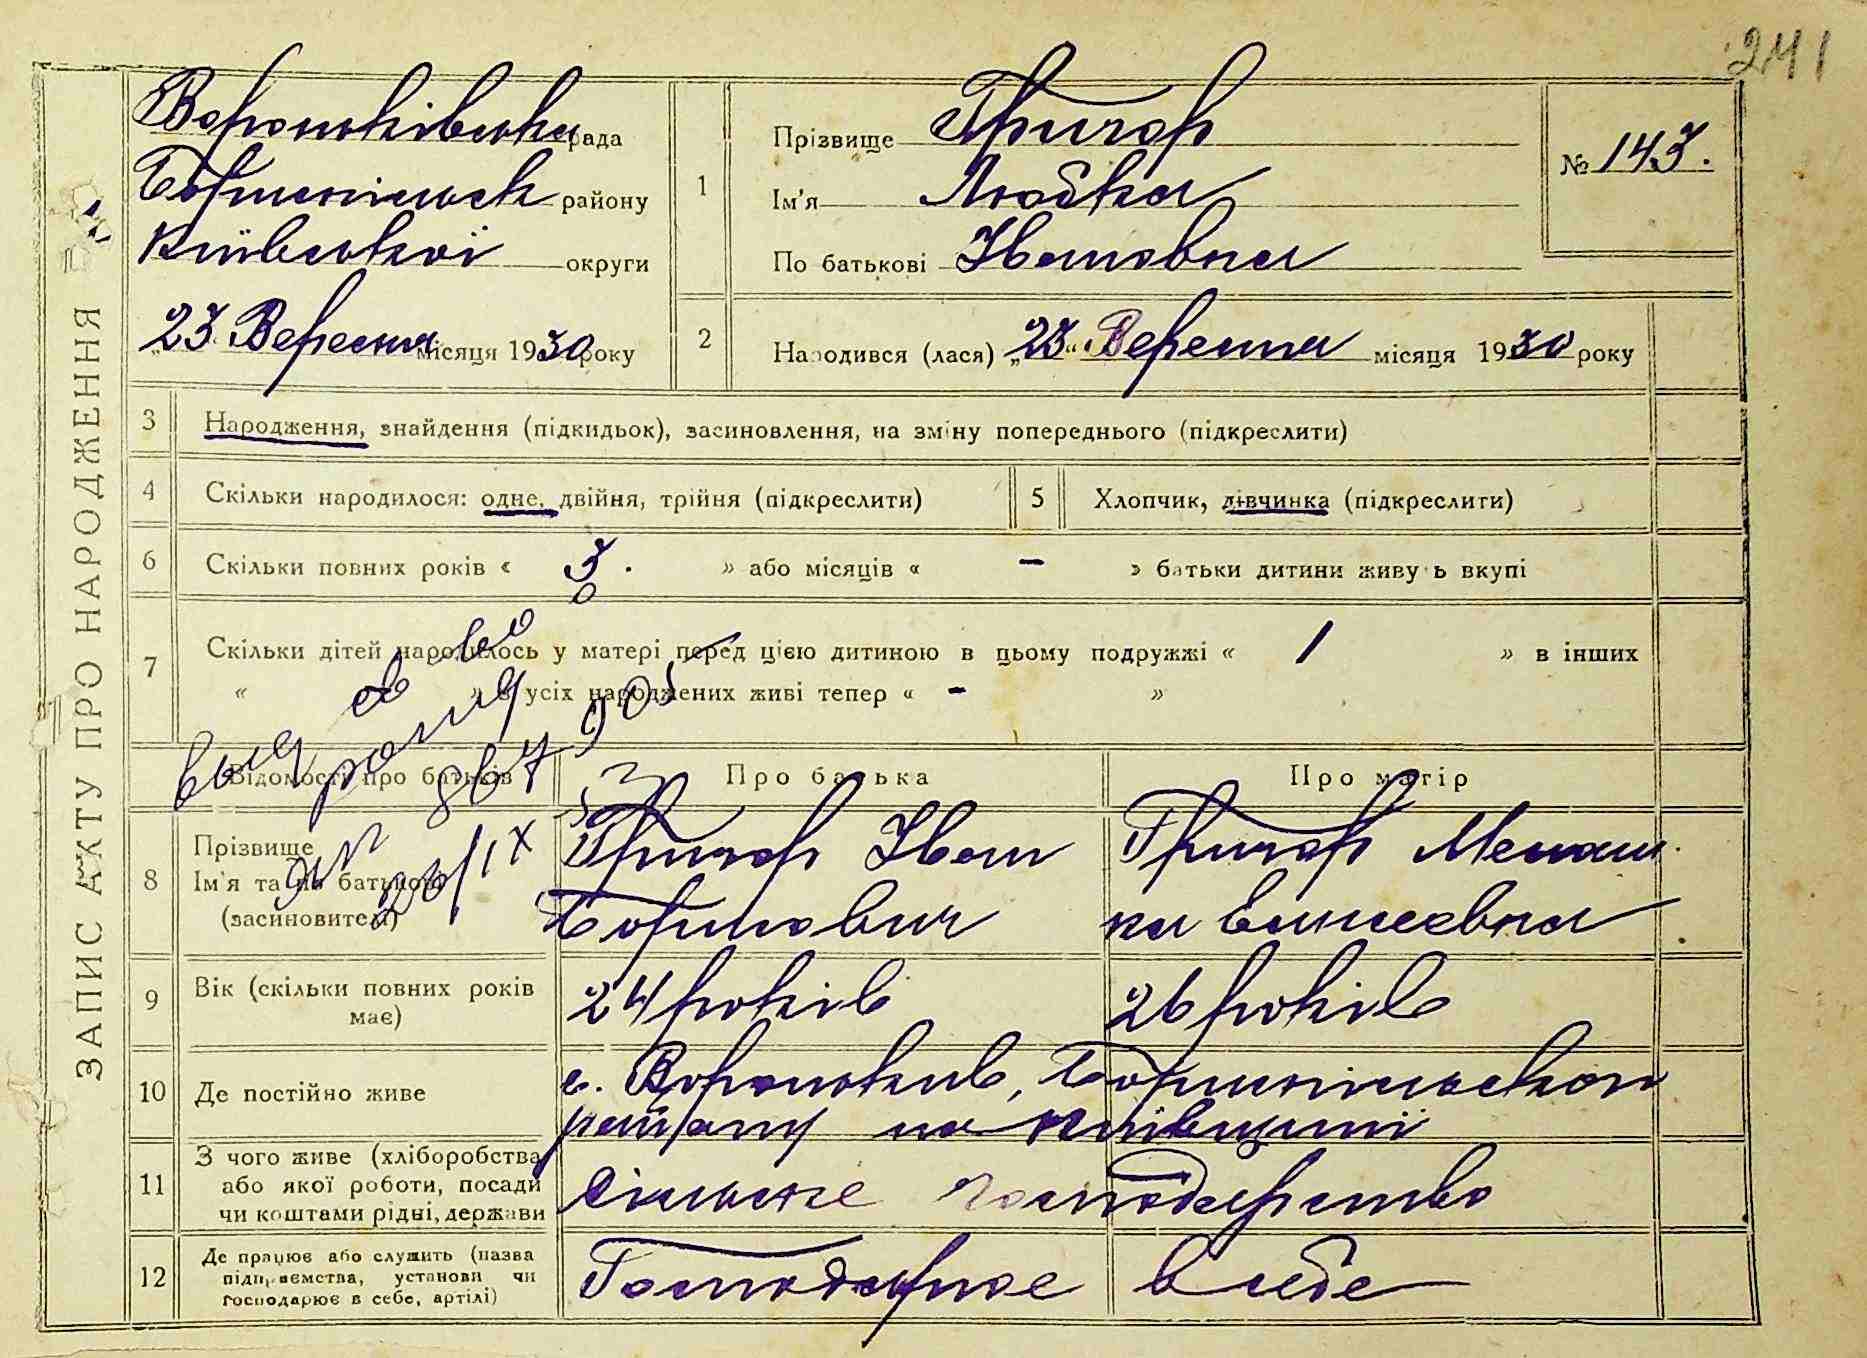 241
ЗАПИС АКТУ ПРО НАРОДЖЕННЯ
Вороньківська рада
Бориспільск району
Київської округи
„23" Вересня місяця 1930 року
1
Прізвище Григор
Ім'я Любка
По батькові Івановна
№ 143.
2
Народився (лася) „23" Вересня місяця 1930 року
3 Народження, знайдення (підкидьок), засиновлення, на зміну попереднього (підкреслити)
4 Скільки народилося: одне, двійня, трійня (підкреслити)
5 Хлопчик, дівчинка (підкреслити)
6 Скільки повних років « 3. » або місяців « - » батьки дитини живуть вкупі
7 Скільки дітей народилось у матері перед цією дитиною в цьому подружжі « 1 » в інших
« » з усіх народжених живі тепер « - »
Відомості про батьків Про батька Про матір
8 Прізвище
Ім'я та по батькові
(засновителі)
Григор Іван
Борисович
Григор Мелаш
ка Елисеевна
9 Вік (скільки повних років
має)
24 років 26 років
10 Де постійно живе
с. Вороньків, Бориспільского
району на Київщині
11 З чого живе (хліборобства
або якої роботи, посади
чи коштами рідні, держави
Сільське господарство
12 Де працює або служить (назва
підприємства, установи чи
господарює в себе, артілі)
Господарює в себе